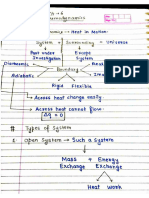 Thermodynamics
Heat in Motion
System + Surrounding = Universe
Part under Except
Investigation System
Diathermic Boundary
Adiabatic
Rigid Flexible
→ Across heat change easily
→ Across heat cannot flow
Δq = 0
# Types of System
1. Open System → Such a system
Mass + Energy
Exchange Exchange
Heat Work